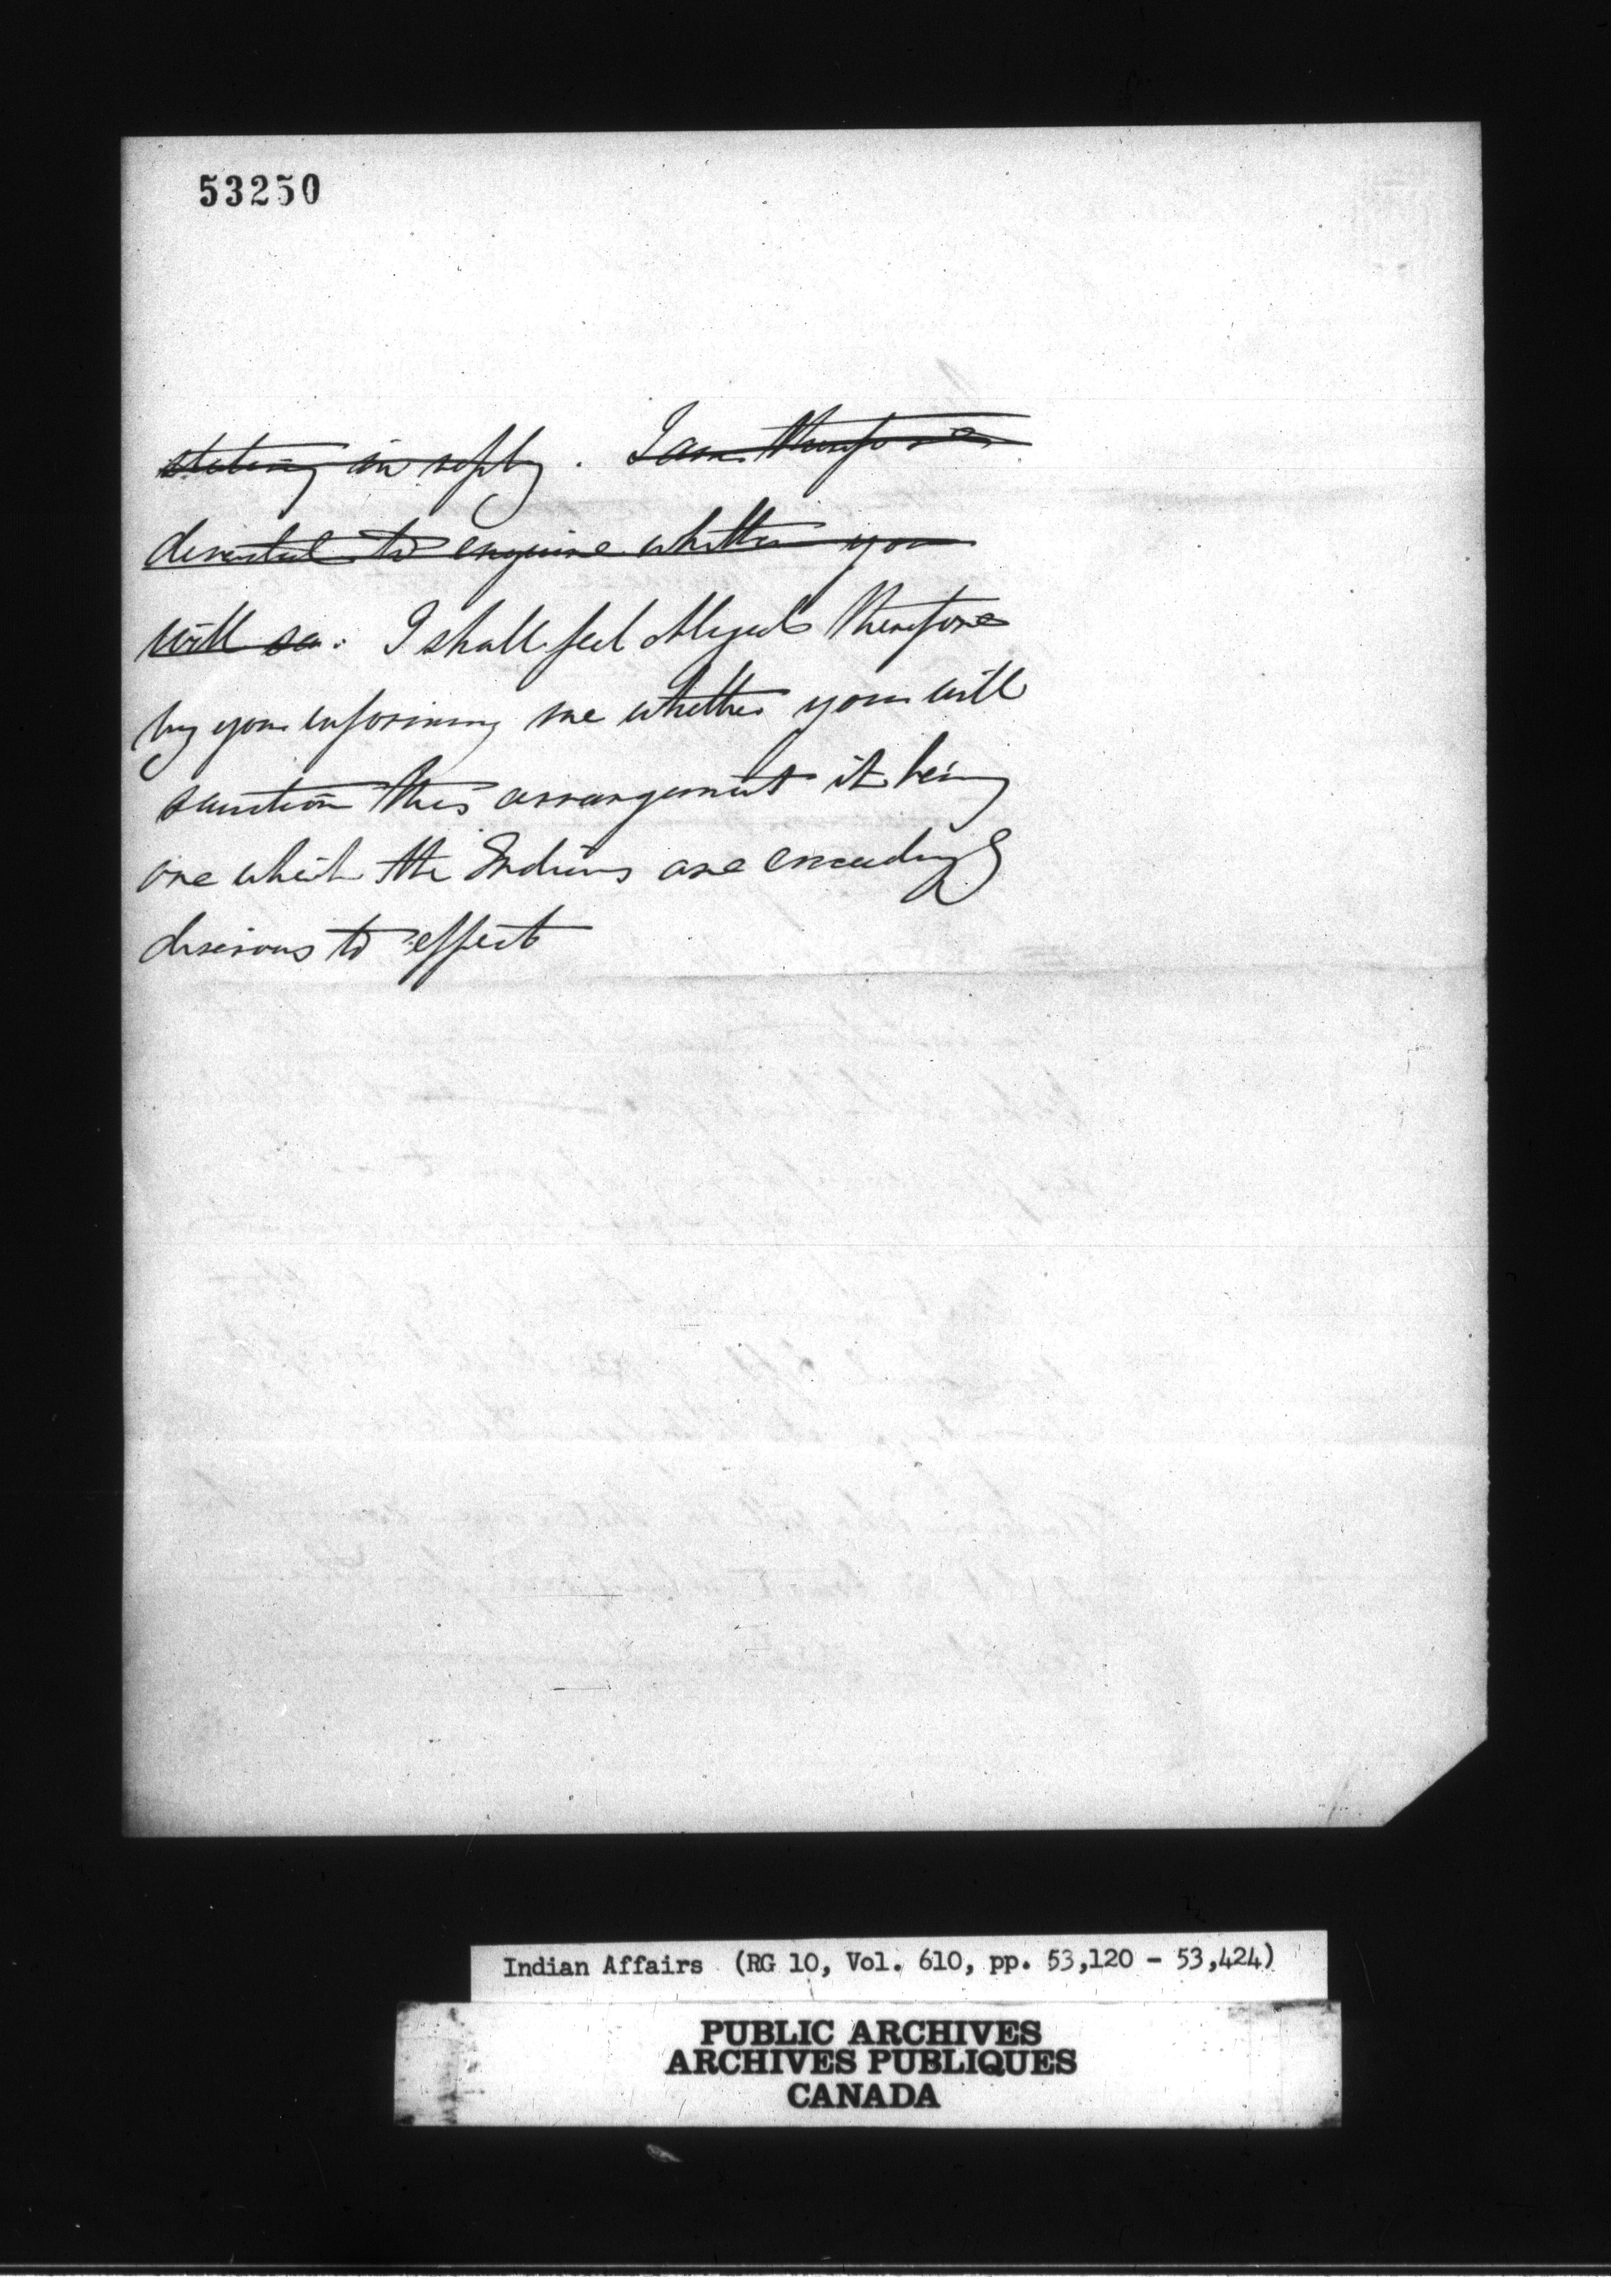 53250
stating in reply. I am therefore
directed to enquire whether you
will sa. I shall feel obliged therefore
by your informing me whether you will
sanction this arrangement it being
one which the Indians are exceedingly
desirous to effect
Indian Affairs (RG 10, Vol. 610, pp. 53,120 - 53,424)
PUBLIC ARCHIVES
ARCHIVES PUBLIQUES
CANADA